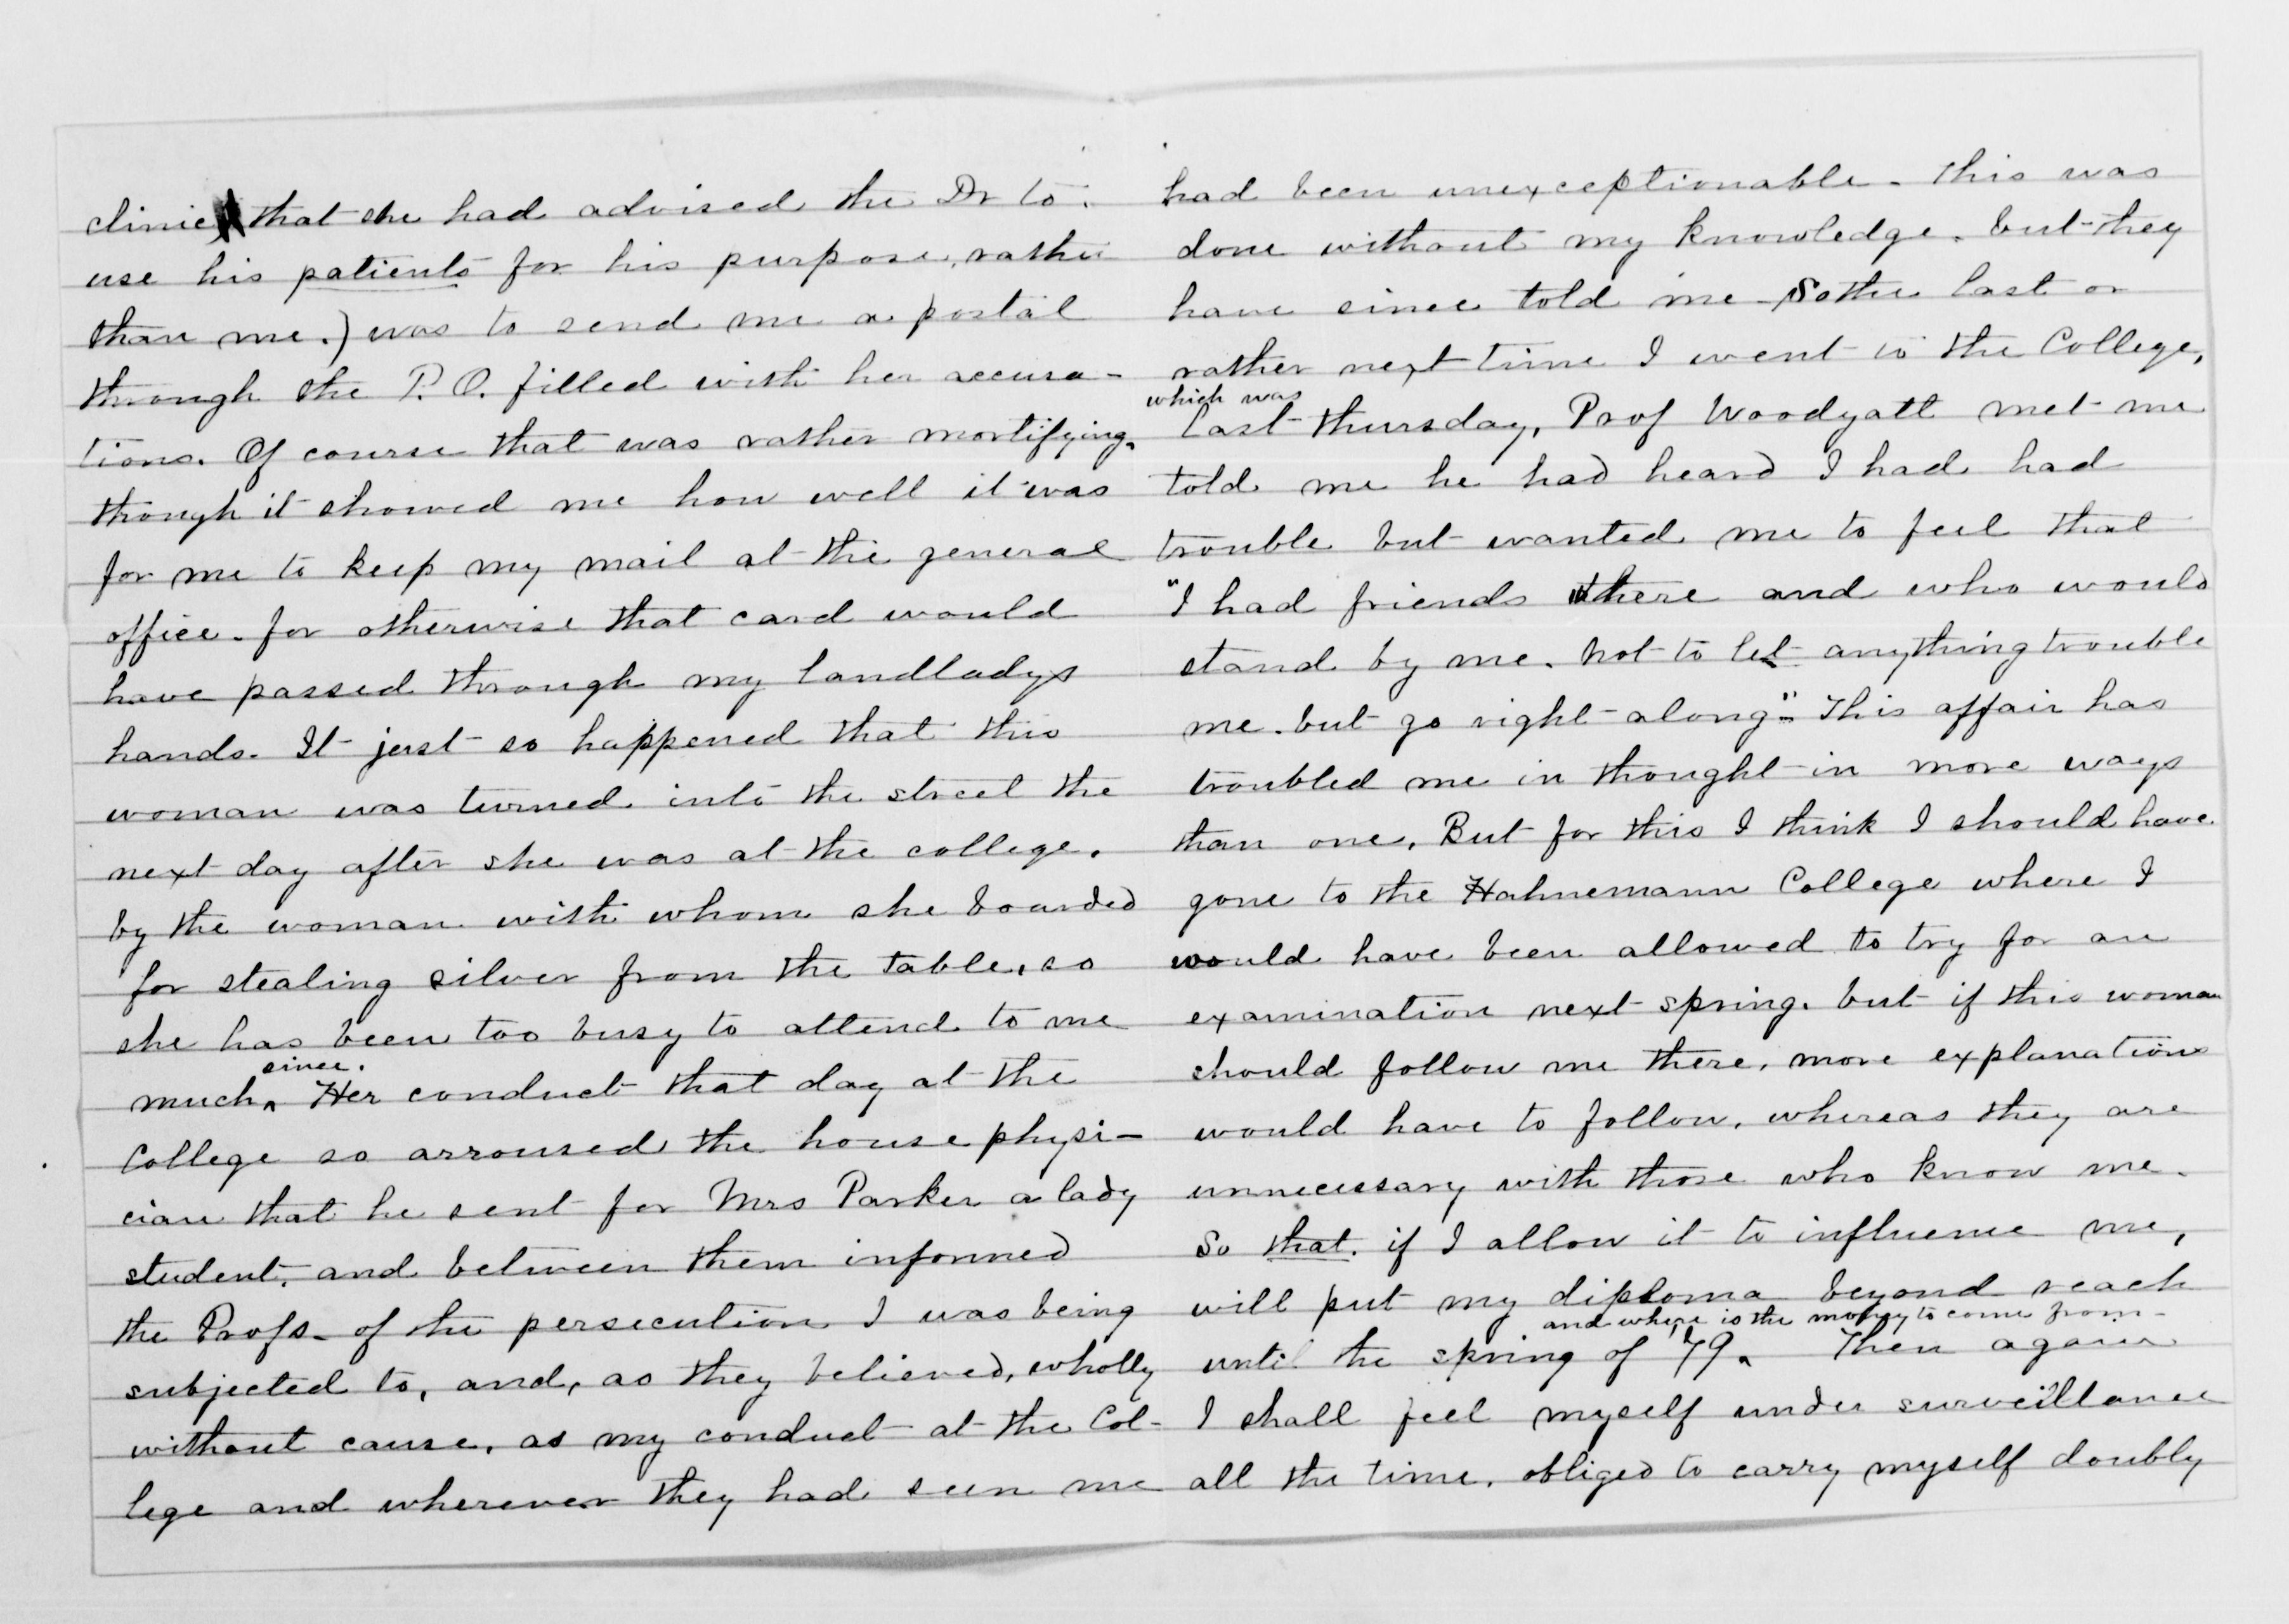 clinic that she had advised the Dr to
use his patients for his purpose, rather
than me.) was to send me a postal
through the P. O. filled with her accusa-
tions. Of course that was rather mortifying.
though it showed me how well it was
for me to keep my mail at the general
office. for otherwise that card would
have passed through my landladys
hands. It just so happened that this
woman was turned into the street the
next day after she was at the college.
by the woman with whom she boarded
for stealing silver from the table, so
she has been too busy to attend to me
since.
much. Her conduct that day at the
College so arroused the house physi-
cian that he sent for Mrs Parker a lady
student, and between them informed
the Profs. of the persecution I was being
subjected to, and, as they believed, wholly
without cause, as my conduct at the Col-
lege and wherever they had seen me
had been unexceptionable. This was
done without my knowledge. but they
have since told me - So the last or
rather next time I went to the College,
which was
last thursday, Prof Woodyatt met me
told me he had heard I had had
trouble but wanted me to feel that
"I had friends there and who would
stand by me. not to let anything trouble
me. but go right along". This affair has
troubled me in thought in more ways
than one. But for this I think I should have
gone to the Hahnemann College where I
would have been allowed to try for an
examination next spring. but if this woman
should follow me there, more explanations
would have to follow, whereas they are
unnecessary with those who know me.
So that. if I allow it to influence me,
will put my diploma beyond reach
and where is the money to come from -
until the spring of '79. Then again
I shall feel myself under surveillance
all the time. obliged to carry myself doubly